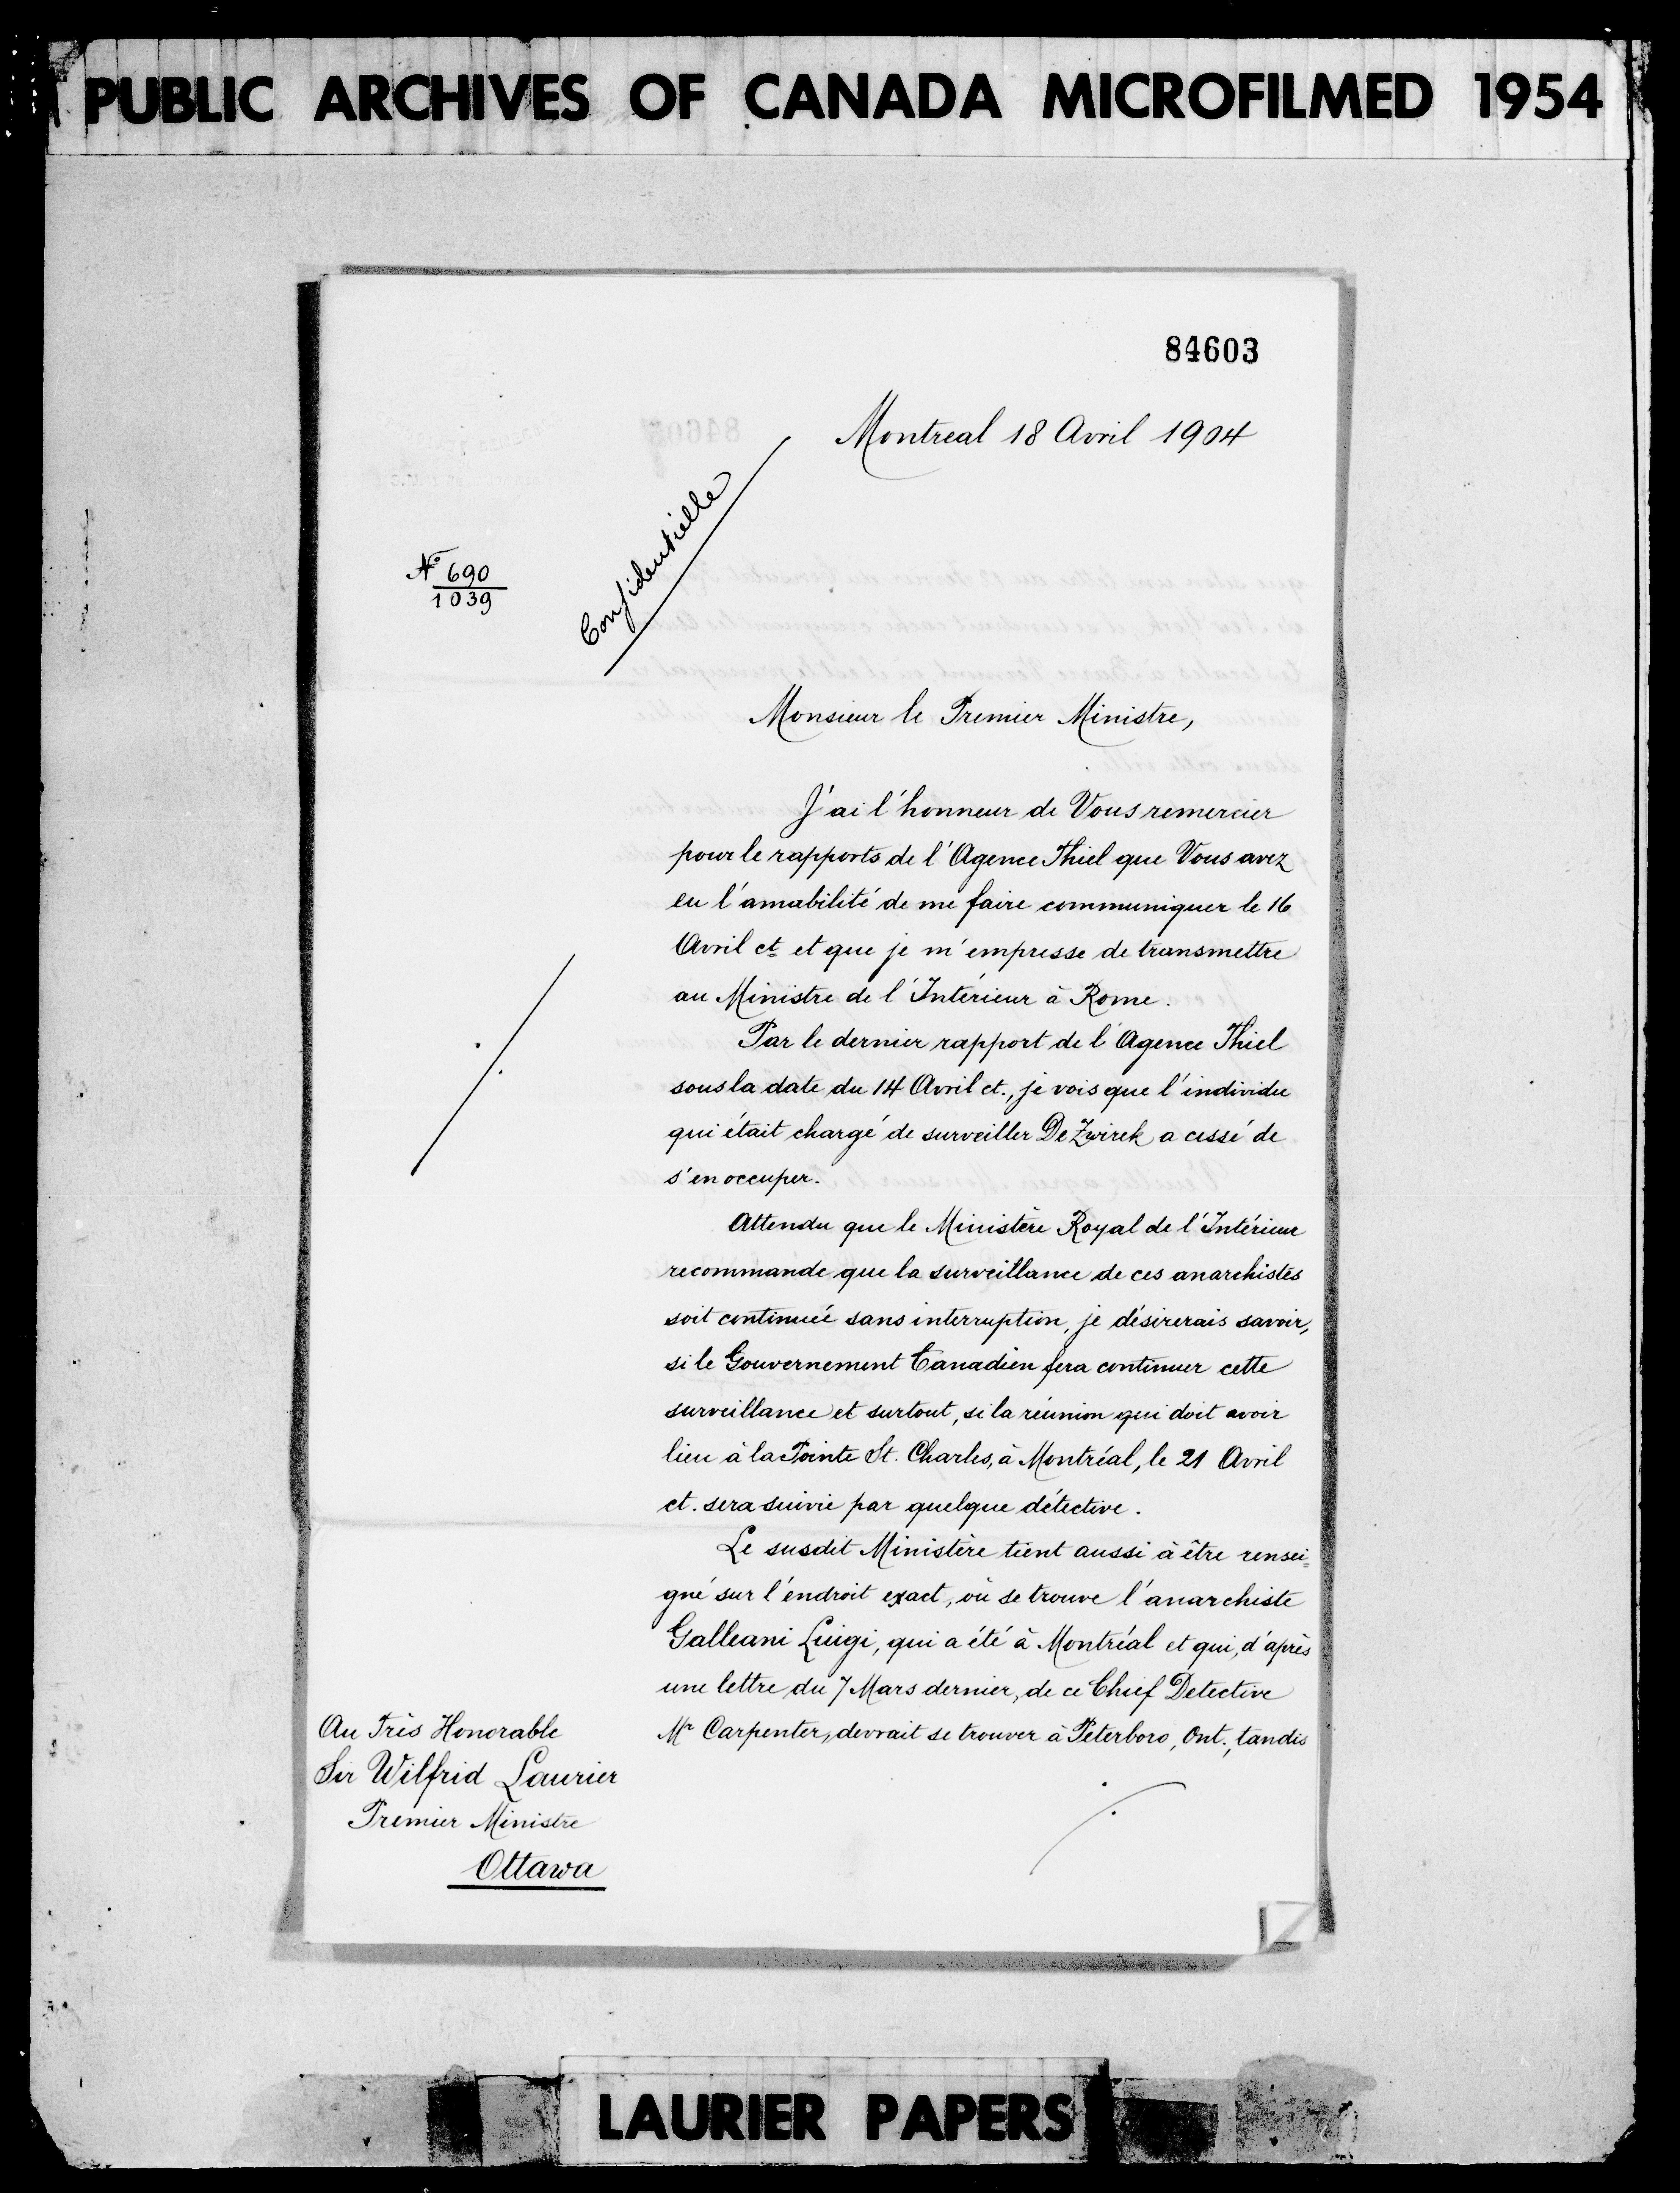 PUBLIC ARCHIVES OF CANADA MICROFILMED 1954
84603
Montreal 18 Avril 1904
Confidentielle
Nº 690
1039
Monsieur le Premier Ministre,
J'ai l'honneur de Vous remercier
pour le rapports de l'Agence Thiel que Vous avez
eu l'amabilité de me faire communiquer le 16
Avril ct et que je m'empresse de transmettre
au Ministre de l'Intérieur à Rome.
Par le dernier rapport de l'Agence Thiel
sous la date du 14 Avril ct., je vois que l'individu
qui était chargé de surveiller De Zwirek a cessé de
s'en occuper.
Attendu que le Ministère Royal de l'Intérieur
recommande que la surveillance de ces anarchistes
soit continuée sans interruption, je désirerais savoir,
si le Gouvernement Canadien fera continuer cette
surveillance et surtout, si la réunion qui doit avoir
lieu à la Pointe St. Charles, à Montréal, le 21 Avril
ct. sera suivie par quelque détective.
Le susdit Ministère tient aussi à être rensei=
gné sur l'endroit exact, où se trouve l'anarchiste
Galleani Luigi, qui a été à Montréal et qui, d'après
une lettre du 7 Mars dernier, de ce Chief Detective
Mr Carpenter, devrait se trouver à Peterboro, Ont., tandis
Au Très Honorable
Sir Wilfrid Laurier
Premier Ministre
Ottawa
LAURIER PAPERS